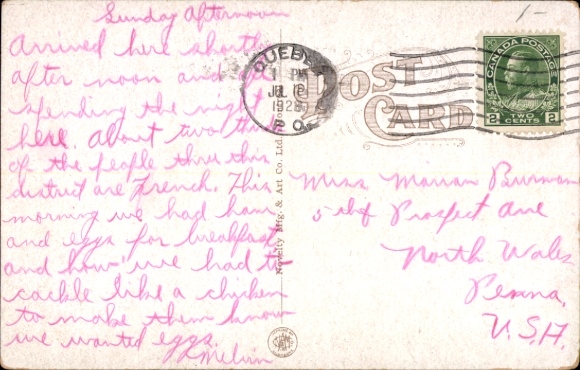 Sunday Afternoon
Arrived here shortly
after noon and are
spending the night
here. About two thirds
of the people thru this
district are French. This
morning we had ham
and eggs for breakfast
and how we had to
cackle like a chicken
to make them know
we wanted eggs.
Melvin
Novelty Mfg. & Art Co. Ltd.
QUEBEC
1 PM
1928
P.Q.
POST
CARD
1-
CANADA POSTAGE
2 TWO CENTS 2
Miss Marian Burman
Prospect Ave
North Wales
Penna.
U.S.A.